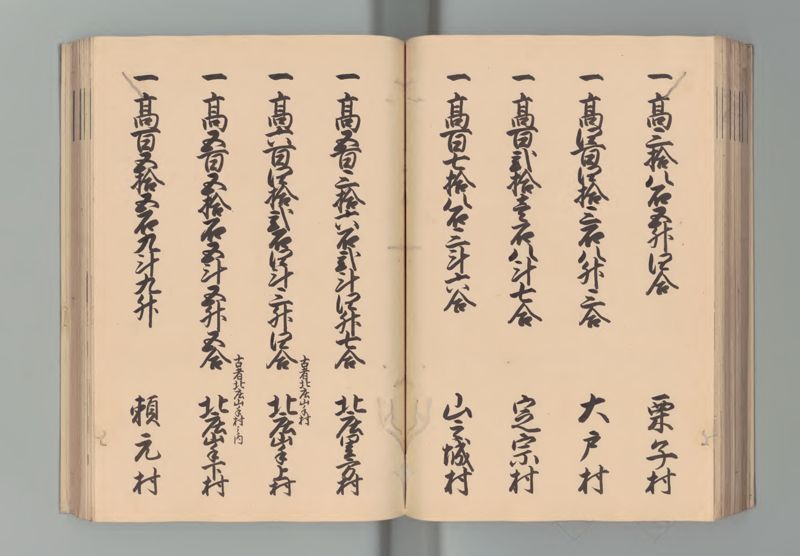 一 髙三拾八石五升四合 栗子村
一 髙四百四拾三石八升三合 大戸村
一 髙百弐拾壱石八斗七合 定宗村
一 髙百七拾八石三斗六合 山之城村
一 髙五百三拾六石弐斗四升七合 北庄里方村
一 髙六百四拾弐石四斗三升四合 北庄山手上村
古者北庄山手村
一 髙五百五拾石五斗五升五合 北庄山手下村
古者北庄山手村之内
一 髙百五拾五石九斗九升 頼元村